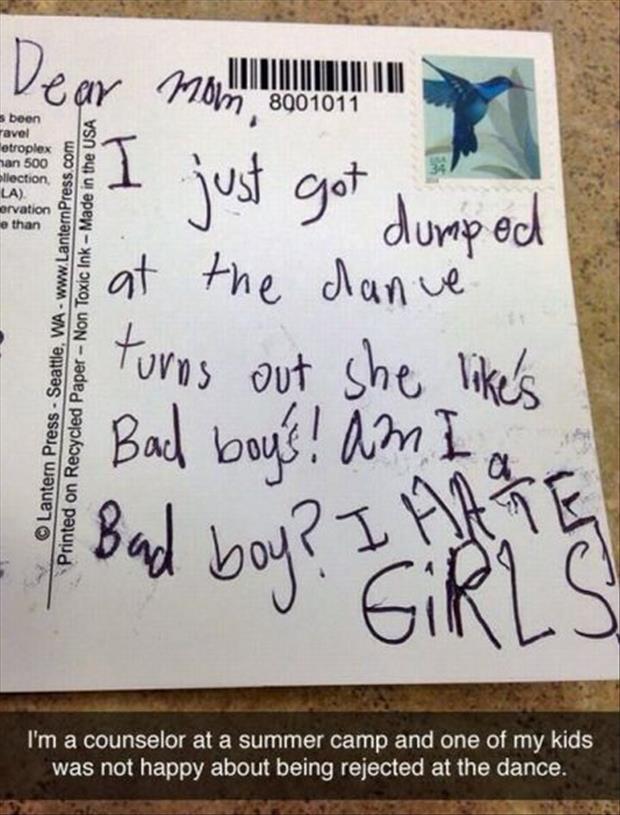 Dear mom,
8001011
USA
34
s been
ravel
etroplex
han 500
ollection,
LA).
ervation
e than
© Lantern Press - Seattle, WA - www.LanternPress.com
Printed on Recycled Paper – Non Toxic Ink – Made in the USA
I just got dumped
at the dance
turns out she like's
Bad boy's! Am I a
Bad boy? I HATE
GiRLS
I'm a counselor at a summer camp and one of my kids
was not happy about being rejected at the dance.